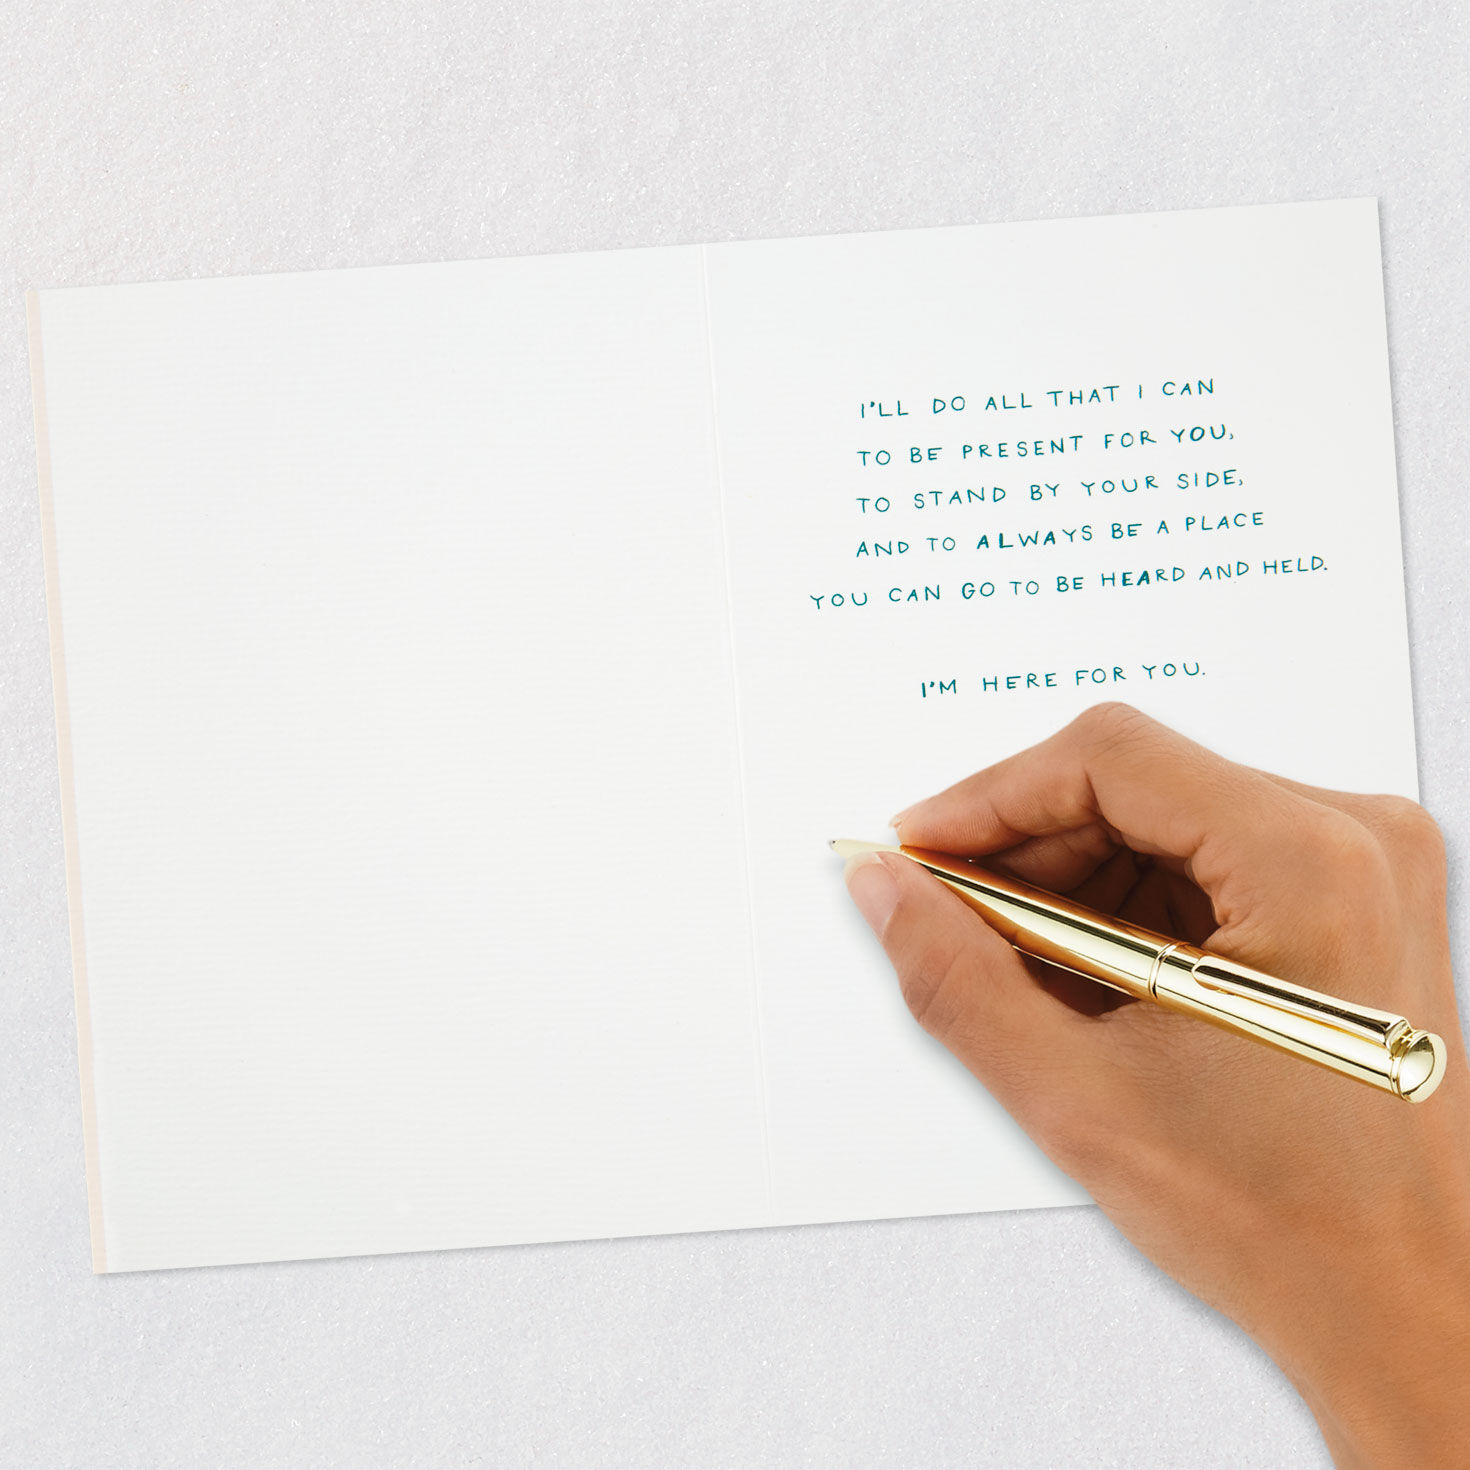 I'LL DO ALL THAT I CAN
TO BE PRESENT FOR YOU,
TO STAND BY YOUR SIDE,
AND TO ALWAYS BE A PLACE
YOU CAN GO TO BE HEARD AND HELD.
I'M HERE FOR YOU.